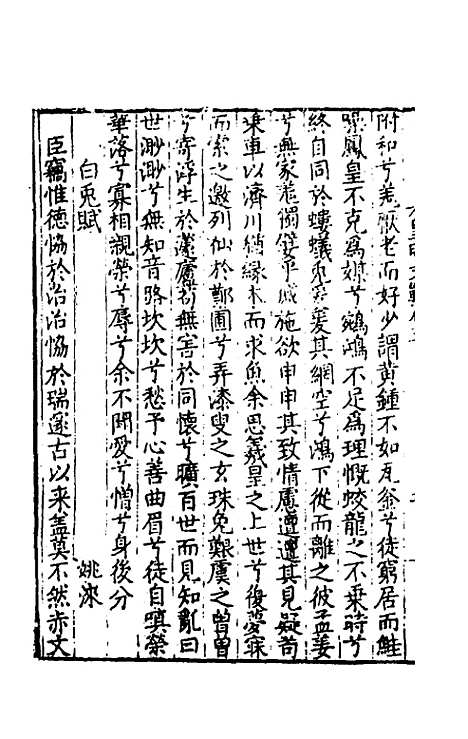 附和兮羌厭老而好少謂黃鍾不如瓦釜兮徒窮居而鮭
鳳皇不克為媒兮鴆不足為理慨蛟龍之不乗時兮
終自同於螻蟻兎爰爰其網空兮鴻下從而離之彼孟姜
兮無家羌獨嬖乎戚施欲申申其致情慮邅邅其見疑苟
乗車以濟川猶縁木而求魚余思羲皇之上世兮復夢寐
而索之邀列仙於鄭圃兮弄漆叟之玄珠免艱虞之曾曾
兮寄浮生於蘧廬苟無害於同懷兮曠百世而見知亂曰
世渺渺兮無知音路坎坎兮愁予心善曲眉兮徒自嗔榮
華落兮寡相親榮兮辱兮余不聞愛兮憎兮身後分
白兎賦 姚淶
臣竊惟德協於治治協於瑞邃古以来盖莫不然赤文